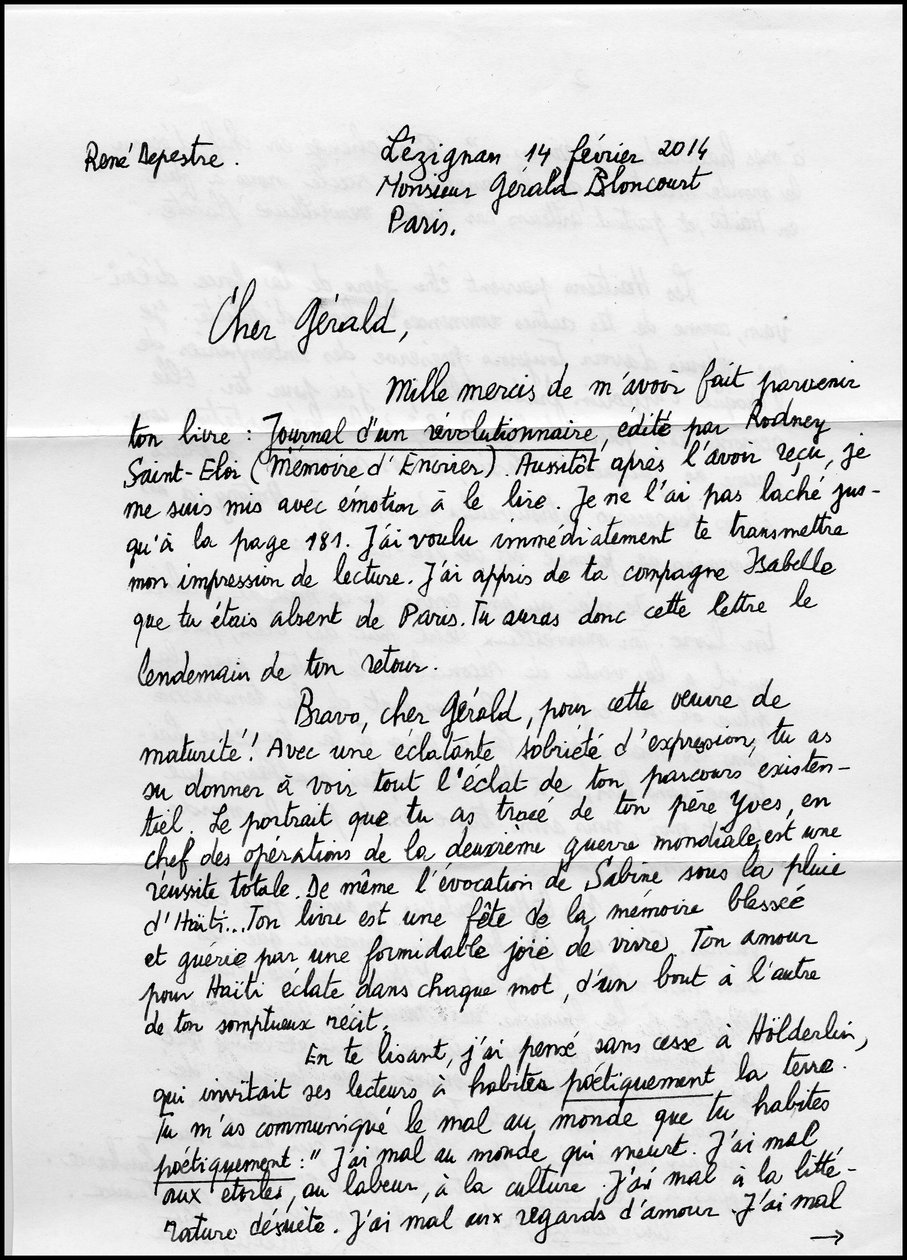 René Depestre.
Lézignan 14 février 2014
Monsieur Gérald Bloncourt
Paris.
Cher Gérald,
Mille mercis de m'avoir fait parvenir
ton livre : Journal d'un révolutionnaire, édité par Rodney
Saint-Eloi (Mémoire d'Encrier). Aussitôt après l'avoir reçu, je
me suis mis avec émotion à le lire. Je ne l'ai pas laché jus-
qu'à la page 181. J'ai voulu immédiatement te transmettre
mon impression de lecture. J'ai appris de ta compagne Isabelle
que tu étais absent de Paris. Tu auras donc cette lettre le
lendemain de ton retour.
Bravo, cher Gérald, pour cette oeuvre de
maturité! Avec une éclatante sobriété d'expression, tu as
su donner à voir tout l'éclat de ton parcours existen-
tiel. Le portrait que tu as tracé de ton père Yves, en
chef des opérations de la deuxième guerre mondiale, est une
réussite totale. De même l'évocation de Sabine sous la pluie
d'Haïti... Ton livre est une fête de la mémoire blessée
et guérie par une formidable joie de vivre. Ton amour
pour Haïti éclate dans chaque mot, d'un bout à l'autre
de ton somptueux récit.
En te lisant, j'ai pensé sans cesse à Hölderlin,
qui invitait ses lecteurs à habiter poétiquement la terre.
Tu m'as communiqué le mal au monde que tu habites
poétiquement : " J'ai mal au monde qui meurt. J'ai mal
aux étoiles, au labeur, à la culture. J'ai mal à la litté-
rature désuète. J'ai mal aux regards d'amour. J'ai mal
→